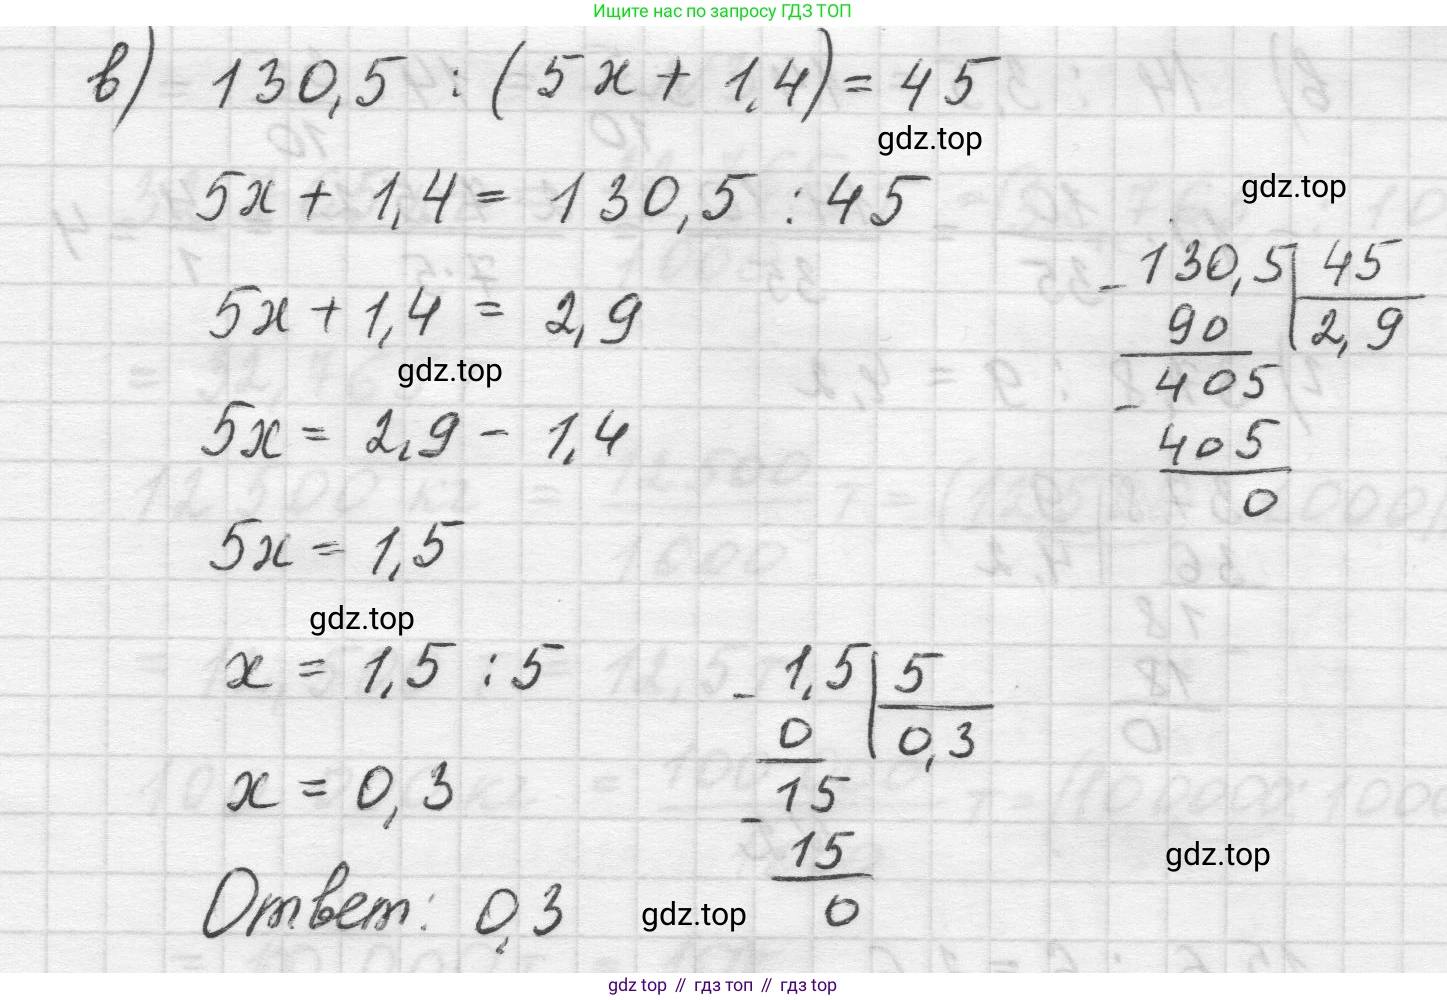 Ищите нас по запросу ГДЗ ТОП
в) 130,5 : (5x + 1,4) = 45
gdz.top
5x + 1,4 = 130,5 : 45
gdz.top
5x + 1,4 = 2,9
gdz.top
5x = 2,9 - 1,4
5x = 1,5
gdz.top
x = 1,5 : 5
x = 0,3
Ответ: 0,3
gdz.top
- 130,5 | 45
90 | 2,9
- 405
405
0
- 1,5 | 5
0 | 0,3
- 15
15
0
gdz.top
gdz top // гдз топ // gdz top